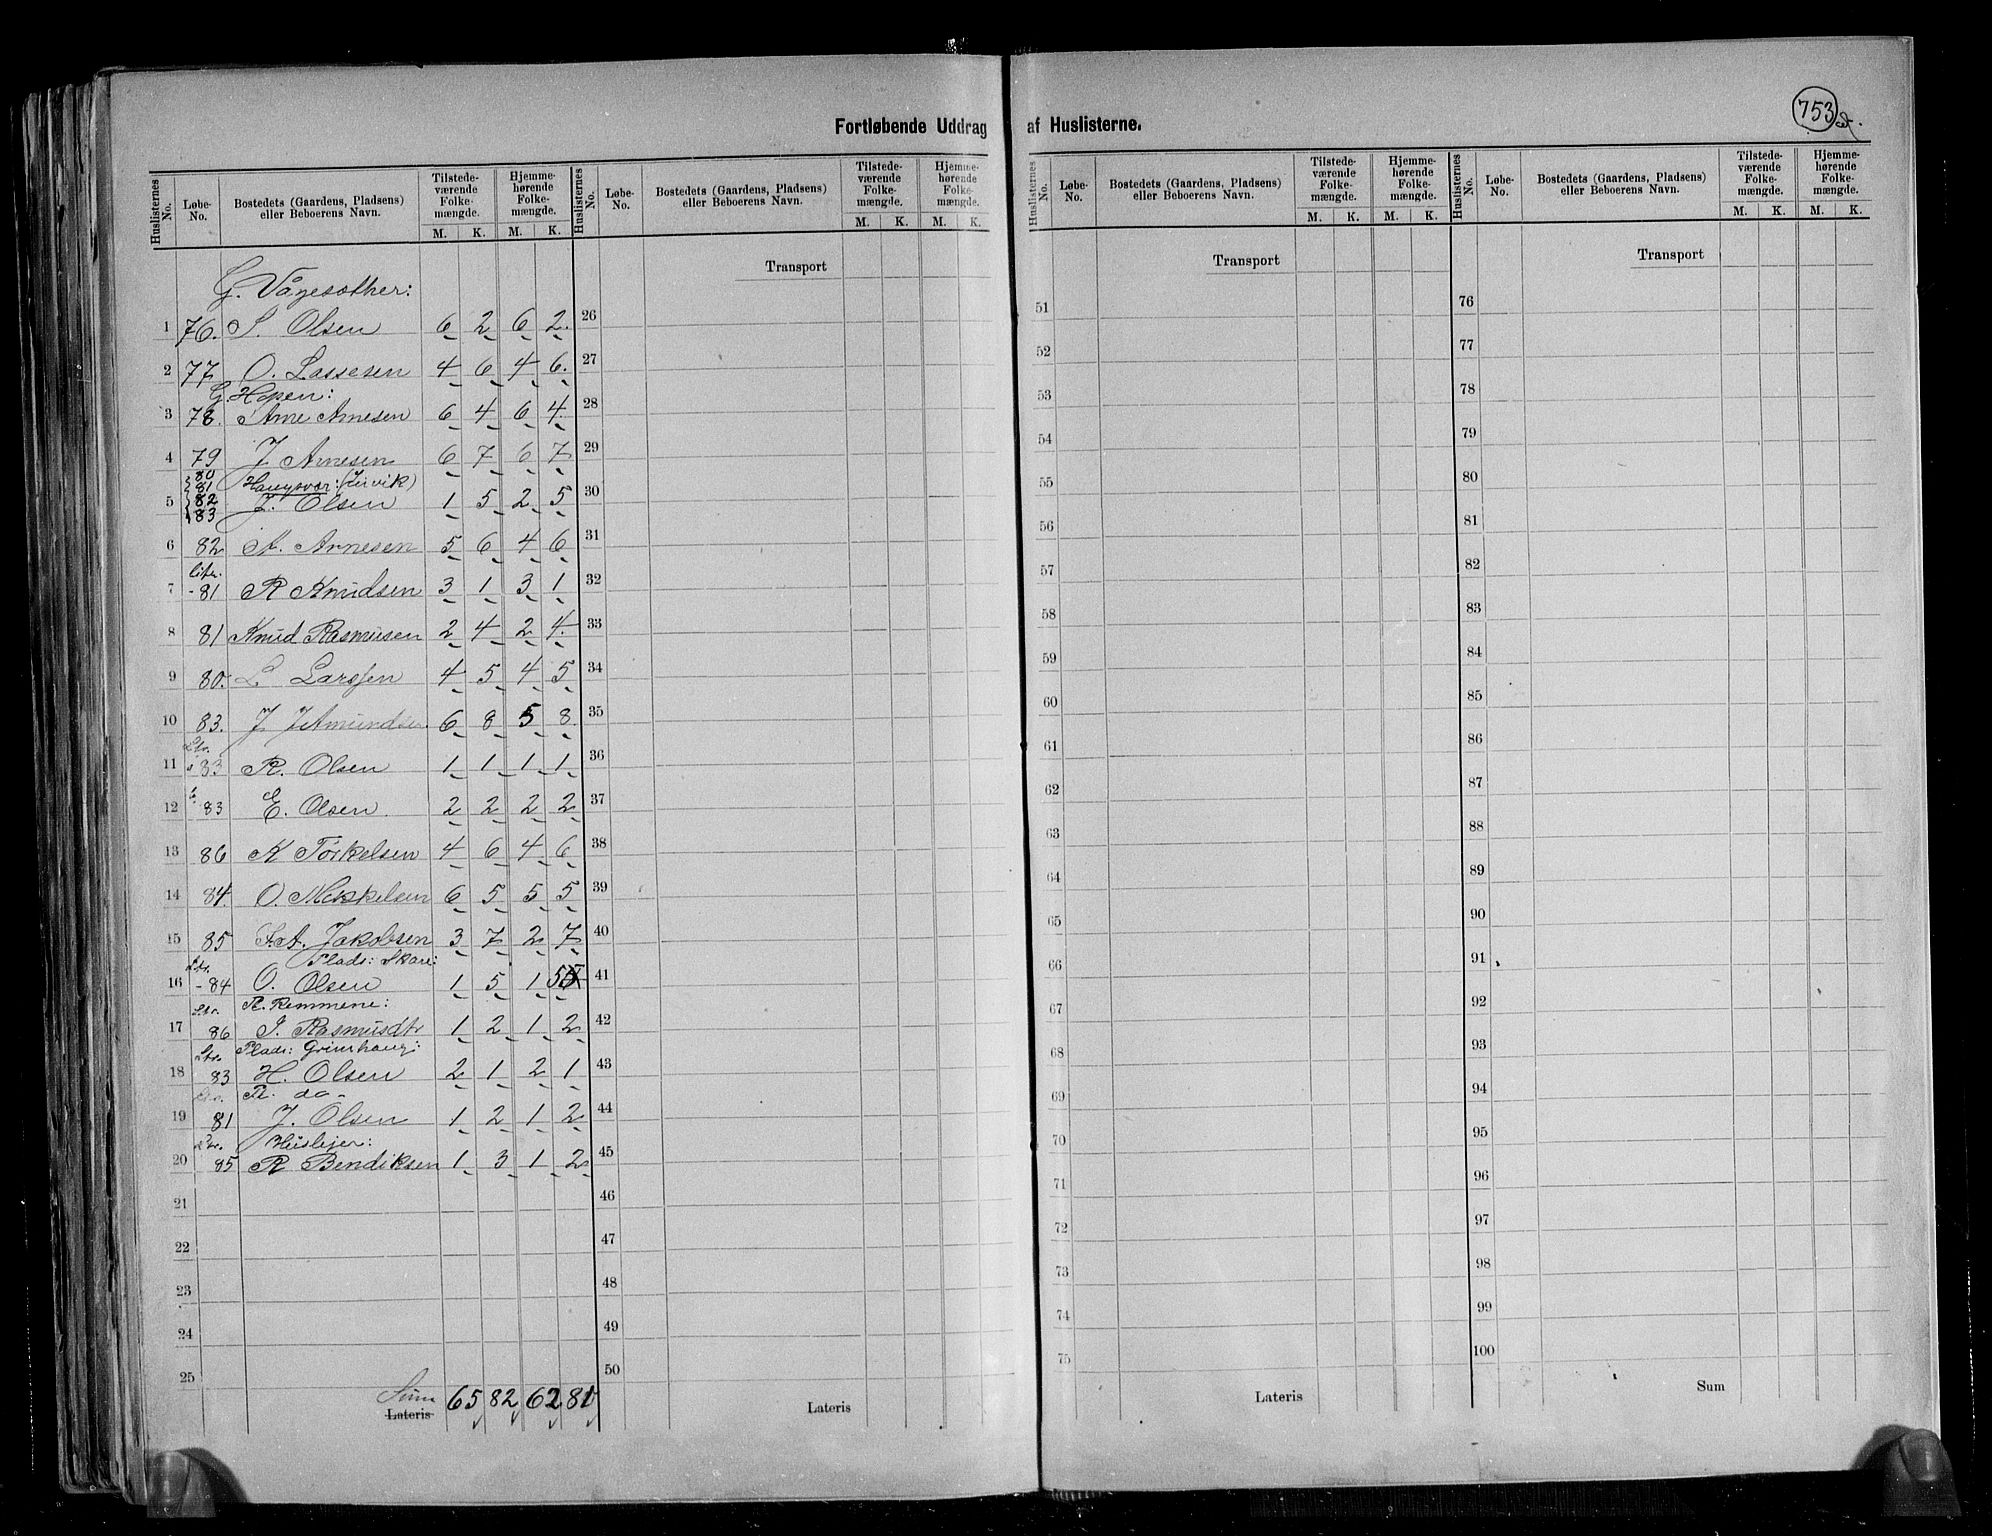 753 a.
Fortløbende Uddrag af Huslisterne.
Huslisternes No. Løbe-No. Bostedets (Gaardens, Pladsens) eller Beboerens Navn. Tilstede-værende Folke-mængde. Hjemme-hørende Folke-mængde.
M. K. M. K.
G. Vågesæther:
1 76. S. Olsen 6 2 6 2.
2 77 O. Lassesen 4 6 4 6.
G. Hopen:
3 78. Arne Arnesen 6 4 6 4
4 79 J. Arnesen 6 7 6 7
80
81 Haugsvær: (Kirvik)
5 82 J. Olsen 1 5 2 5
83
6 82 A. Arnesen 5 6 4 6
7 -81 R Knudsen 3 1 3 1
8 81 Knud Rasmusen 2 4 2 4.
9 80. L. Larssen 4 5 4 5
10 83. J. J. Amundsen 6 8 5 8
Ltr.
11 83 R. Olsen 1 1 1 1
12 83 E. Olsen 2 2 2 2
13 86 K Torkelsen 4 6 4 6
14 84. O. Mikkelsen 6 5 5 5
15 85 A. Jakobsen 3 7 2 7
Ltr. Plads: Skare:
16 -84 O. Olsen 1 5 1 5
Ltr. Pl. Remmene:
17 86 J. Rasmusdtr 1 2 1 2
Ltr. Plads: Grimhaug:
18 83 H. Olsen 2 1 2 1
Ltr. Pl. do -
19 81 J. Olsen 1 2 1 2
Ltr. Huslejer:
20 85 R Bendiksen 1 3 1 2
21
22
23
24
25
Sum 65 82 62 81
Lateris
Huslisternes No. Løbe-No. Bostedets (Gaardens, Pladsens) eller Beboerens Navn. Tilstede-værende Folke-mængde. Hjemme-hørende Folke-mængde.
M. K. M. K.
Transport
26
27
28
29
30
31
32
33
34
35
36
37
38
39
40
41
42
43
44
45
46
47
48
49
50
Lateris
Huslisternes No. Løbe-No. Bostedets (Gaardens, Pladsens) eller Beboerens Navn. Tilstede-værende Folke-mængde. Hjemme-hørende Folke-mængde.
M. K. M. K.
Transport
51
52
53
54
55
56
57
58
59
60
61
62
63
64
65
66
67
68
69
70
71
72
73
74
75
Lateris
Huslisternes No. Løbe-No. Bostedets (Gaardens, Pladsens) eller Beboerens Navn. Tilstede-værende Folke-mængde. Hjemme-hørende Folke-mængde.
M. K. M. K.
Transport
76
77
78
79
80
81
82
83
84
85
86
87
88
89
90
91
92
93
94
95
96
97
98
99
100
Sum